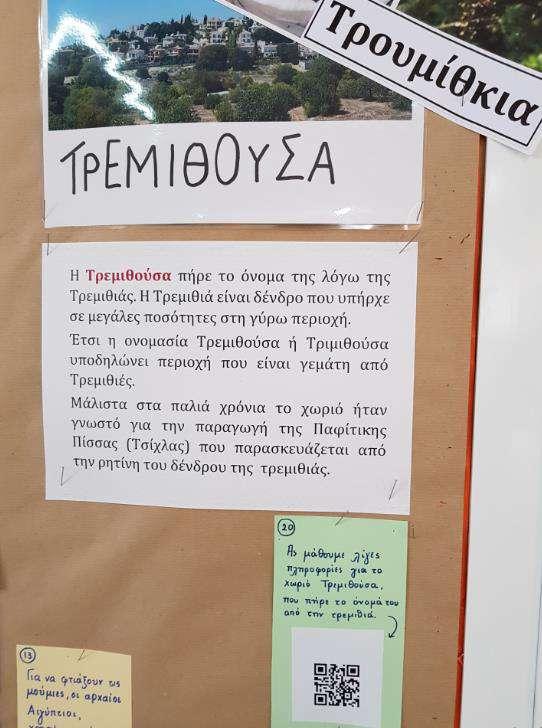 Τρουμίθκια
ΤΡΕΜΙΘΟΥΣΑ
Η Τρεμιθούσα πήρε το όνομα της λόγω της
Τρεμιθιάς. Η Τρεμιθιά είναι δένδρο που υπήρχε
σε μεγάλες ποσότητες στη γύρω περιοχή.
Έτσι η ονομασία Τρεμιθούσα ή Τριμιθούσα
υποδηλώνει περιοχή που είναι γεμάτη από
Τρεμιθιές.
Μάλιστα στα παλιά χρόνια το χωριό ήταν
γνωστό για την παραγωγή της Παφίτικης
Πίσσας (Τσίχλας) που παρασκευάζεται από
την ρητίνη του δένδρου της τρεμιθιάς.
20
Ας μάθουμε λίγες
πληροφορίες για το
χωριό Τρεμιθούσα,
που πήρε το όνομά του
από την τρεμιθιά.
13
Για να φτιάξουν τις
μούμιες, οι αρχαίοι
Αιγύπτιοι,